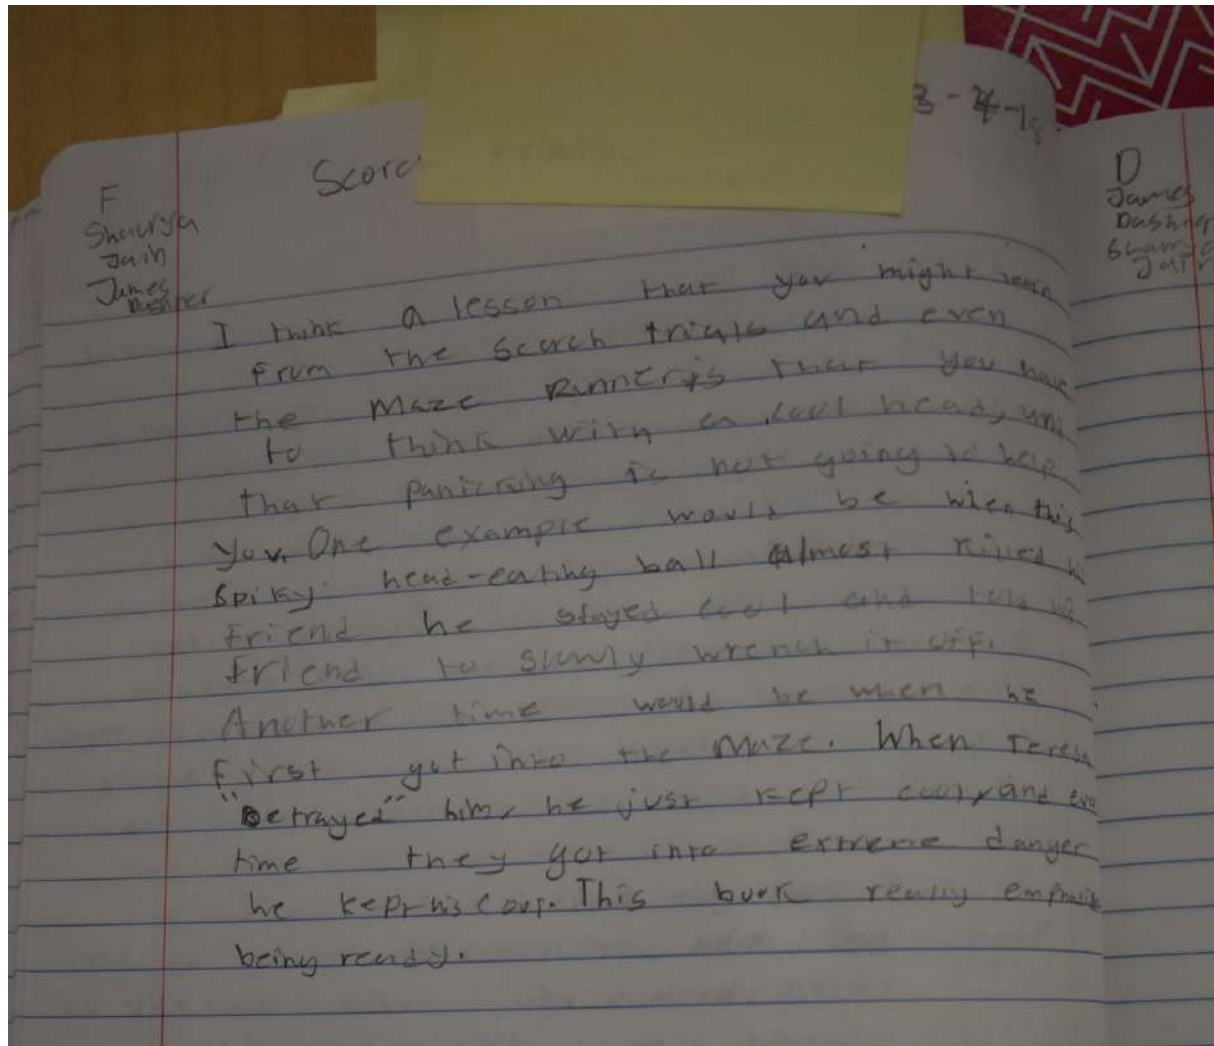 3-4-18.
Scorc
F
Shaurya
Jain
James
Dashner
I think a lesson that you might learn
from the Scorch trials and even
the Maze Runner is that you have
to think with a cool head, and
that panicking is not going to help
you. One example would be when this
Spiky head-eating ball almost killed his
friend he stayed cool and told his
friend to slowly wrench it off.
Another time would be when he
first got into the Maze. When Teresa
"Betrayed" him, he just kept cool, and
time they got into extreme danger
he kept his cool. This book really
being ready.
D
James
Dashner
Jain